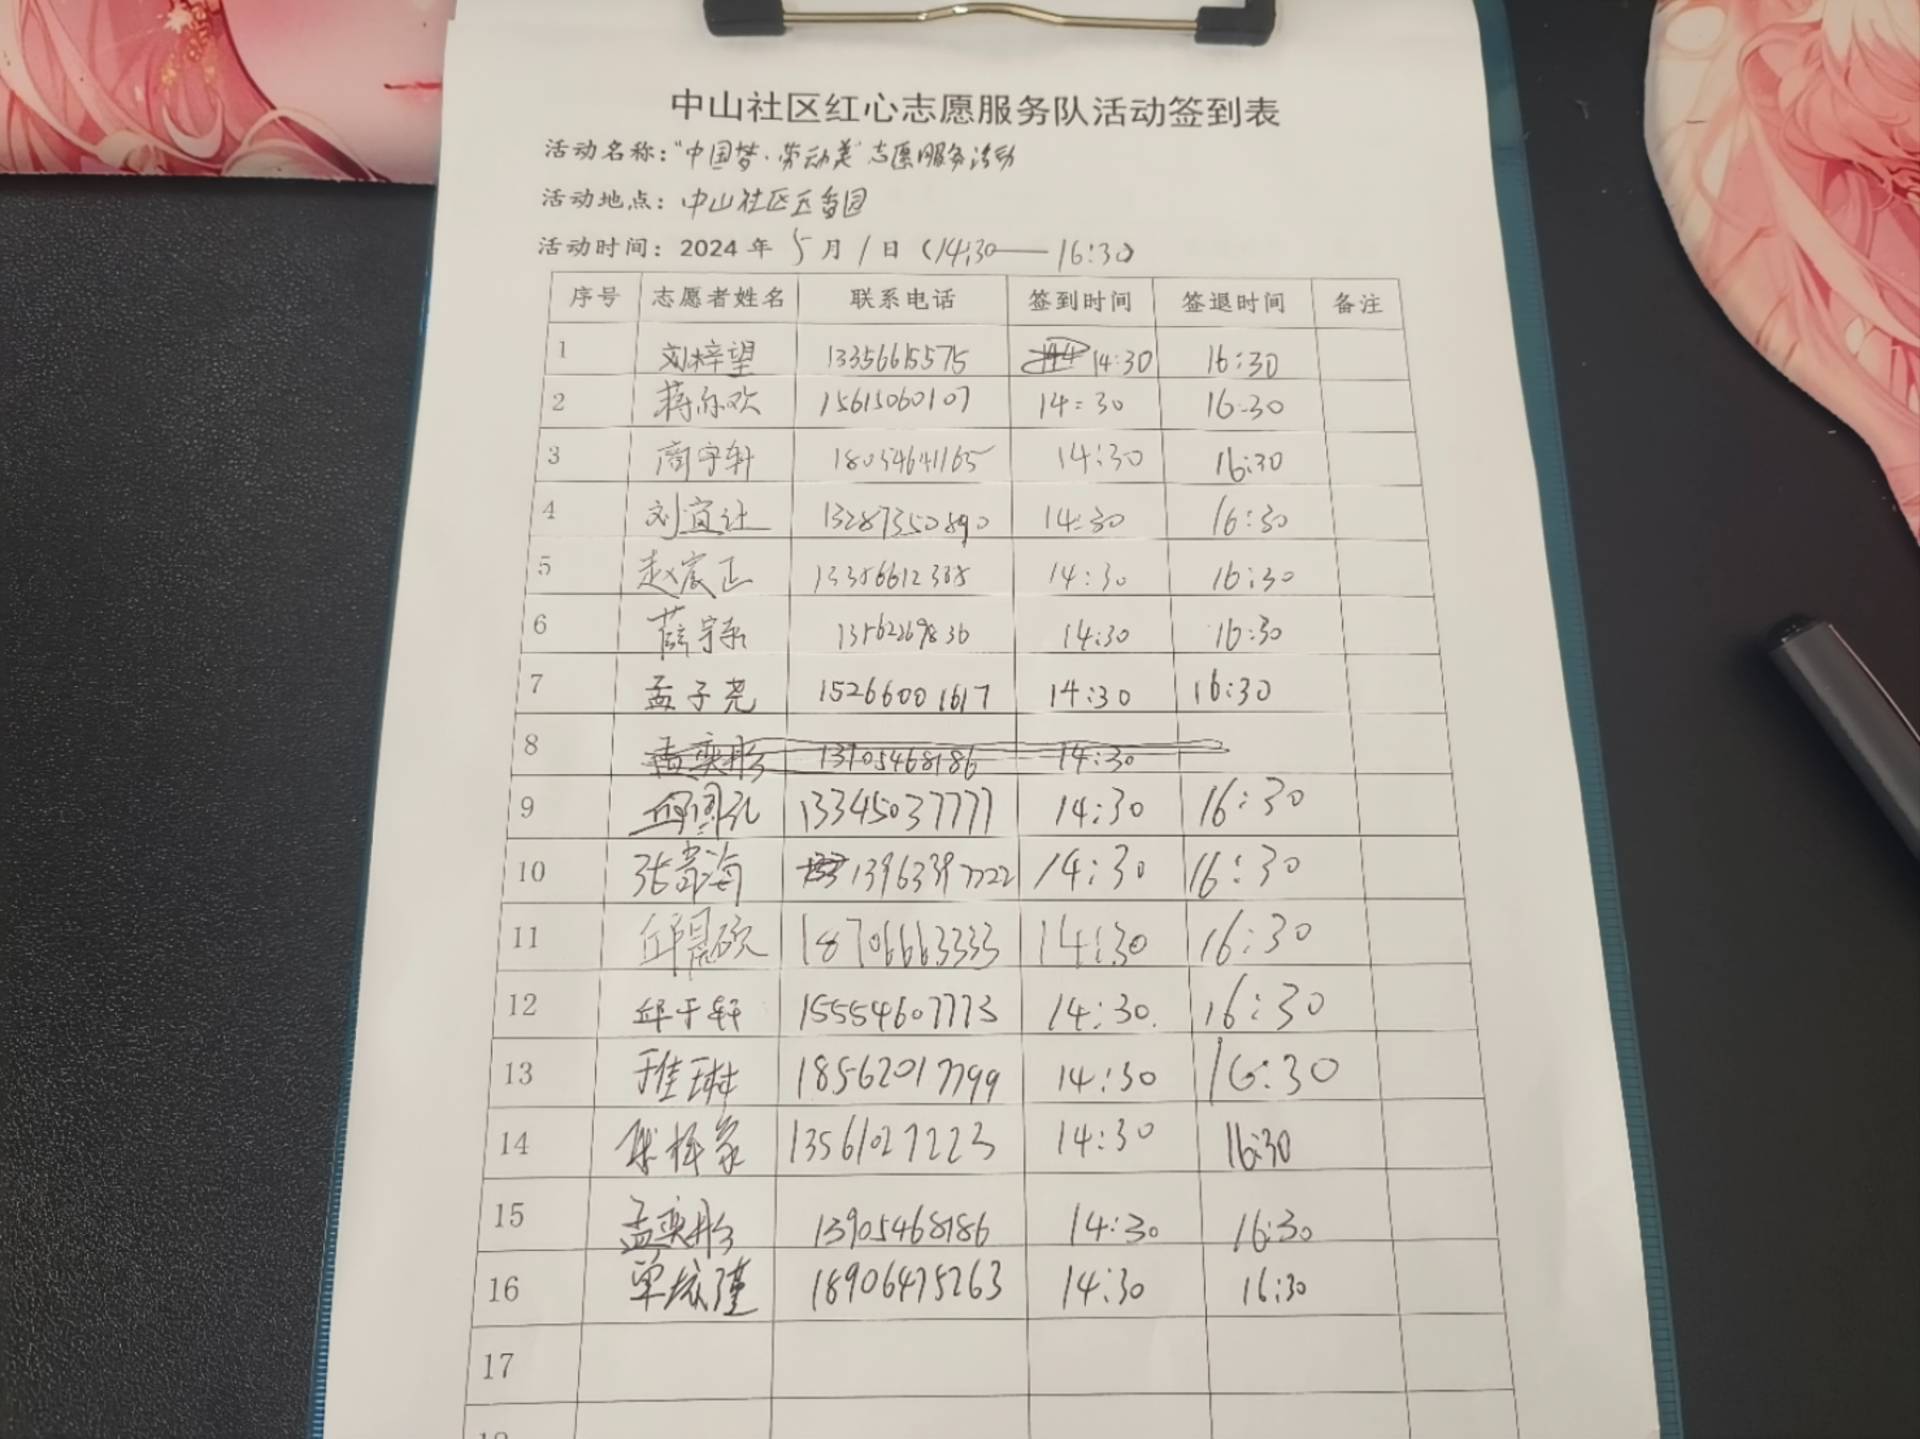 中山社区红心志愿服务队活动签到表
活动名称："中国梦·劳动美"志愿服务活动
活动地点：中山社区百台园
活动时间：2024 年 5 月 1 日（14:30——16:30）
序号 志愿者姓名 联系电话 签到时间 签退时间 备注
1 刘梓望 13356615575 14:30 16:30
2 蒋尔欢 15615060107 14:30 16:30
3 商宇轩 18054641165 14:30 16:30
4 刘宜让 13287350890 14:30 16:30
5 赵宸正 14:30 16:30
6 薛 13562269836 14:30 16:30
7 孟子尧 15266001617 14:30 16:30
8 孟奕彤 13905468186 14:30
9 13345037777 14:30 16:30
10 张 海 13963397722 14:30 16:30
11 邱晨硕 18706663333 14:30 16:30
12 邱于轩 15554607773 14:30 16:30
13 18562017799 14:30 16:30
14 13561027223 14:30 16:30
15 孟奕彤 13905468186 14:30 16:30
16 单 瑾 18906475263 14:30 16:30
17